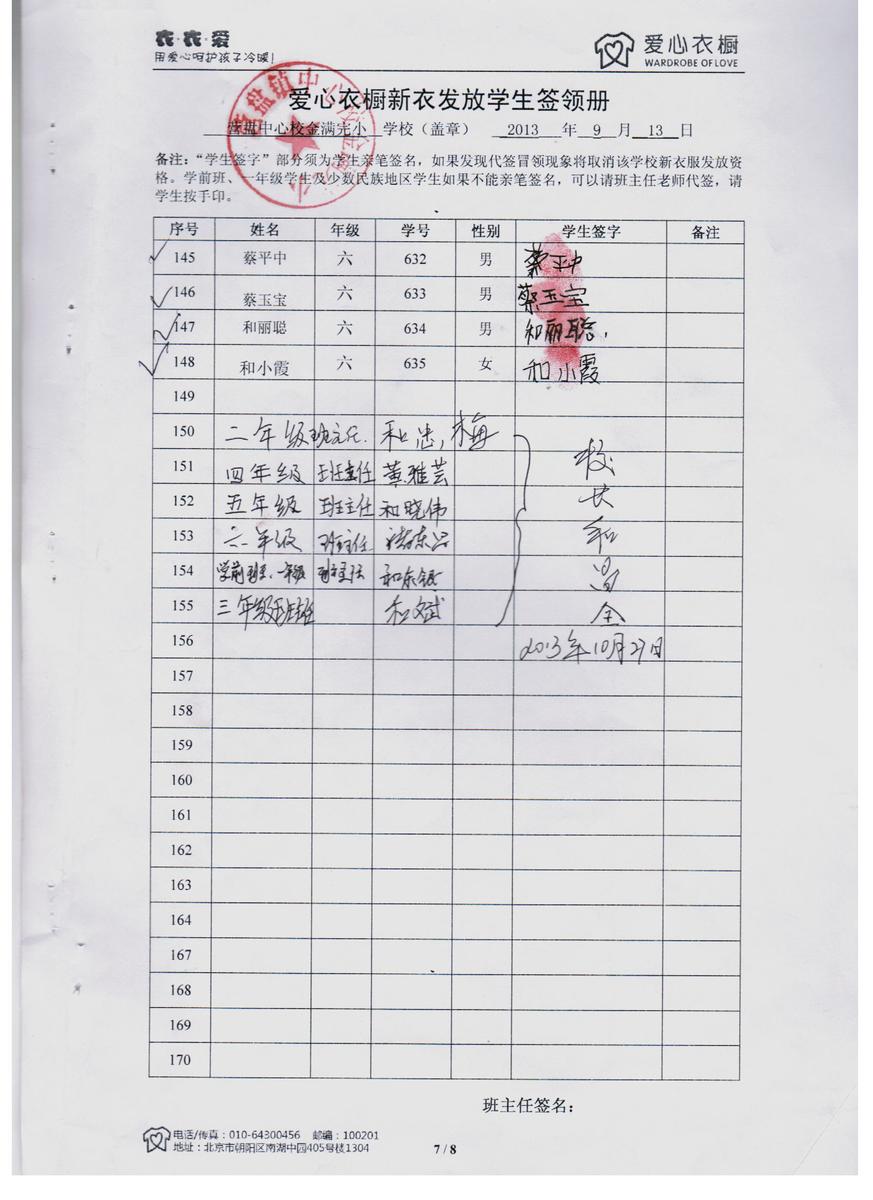 衣·衣·爱
用爱心呵护孩子冷暖!
爱心衣橱
WARDROBE OF LOVE
爱心衣橱新衣发放学生签领册
营盘中心校金满完小 学校（盖章） 2013 年 9 月 13 日
备注：“学生签字”部分须为学生亲笔签名，如果发现代签冒领现象将取消该学校新衣服发放资
格。学前班、一年级学生及少数民族地区学生如果不能亲笔签名，可以请班主任老师代签，请
学生按手印。
序号 姓名 年级 学号 性别 学生签字 备注
145 蔡平中 六 632 男 蔡平中
146 蔡玉宝 六 633 男 蔡玉宝
147 和丽聪 六 634 男 和丽聪
148 和小霞 六 635 女 和小霞
149
150 二年级班主任. 和忠梅
151 四年级 班主任 黄雅芸 校
152 五年级 班主任 和晓伟 长
153 六年级 班主任 和
154 学前班、一年级 班主任 和东银
155 三年级班主任 和斌 全
156 2013年10月27日
157
158
159
160
161
162
163
164
165
166
167
168
169
170
班主任签名：
电话/传真：010-64300456 邮编：100201
地址：北京市朝阳区南湖中园405号楼1304
7 / 8